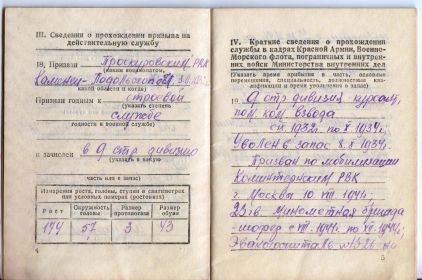 III. Сведения о прохождении призыва на
действительную службу
18. Призван Проскуровским РВК
(каким военкоматом,
Каменец-Подольской обл.
какой области и когда)
Признан годным к строевой
(указать степень
службе
годности к военной службе)
и зачислен в 9 стр дивизию
(указать в какую
часть или в запас)
Измерения роста, головы, ступни в сантиметрах
или условных номерах (ростовках)
Рост
Окружность головы
Размер противогаза
Размер обуви
174 57 3 43
4
IV. Краткие сведения о прохождении
службы в кадрах Красной Армии, Военно-
Морского флота, пограничных и внутрен-
них войск Министерства внутренних дел
(Указать время прибытия в часть, основные
перемещения, специальность, должностная ква-
лификация и время увольнения в запас)
19. 9 стр. дивизия курсант,
пом. ком. взвода
с 1932г. по X 1934г.
Уволен в запас 8 X 1934г.
Призван по мобилизации
Коминтерновским РВК
г Москвы 10. VIII 1941г.
23 гв. Минометная бригада
- шофер с VIII. 1941г. по VII. 1944г;
Эвакогоспиталь №
5